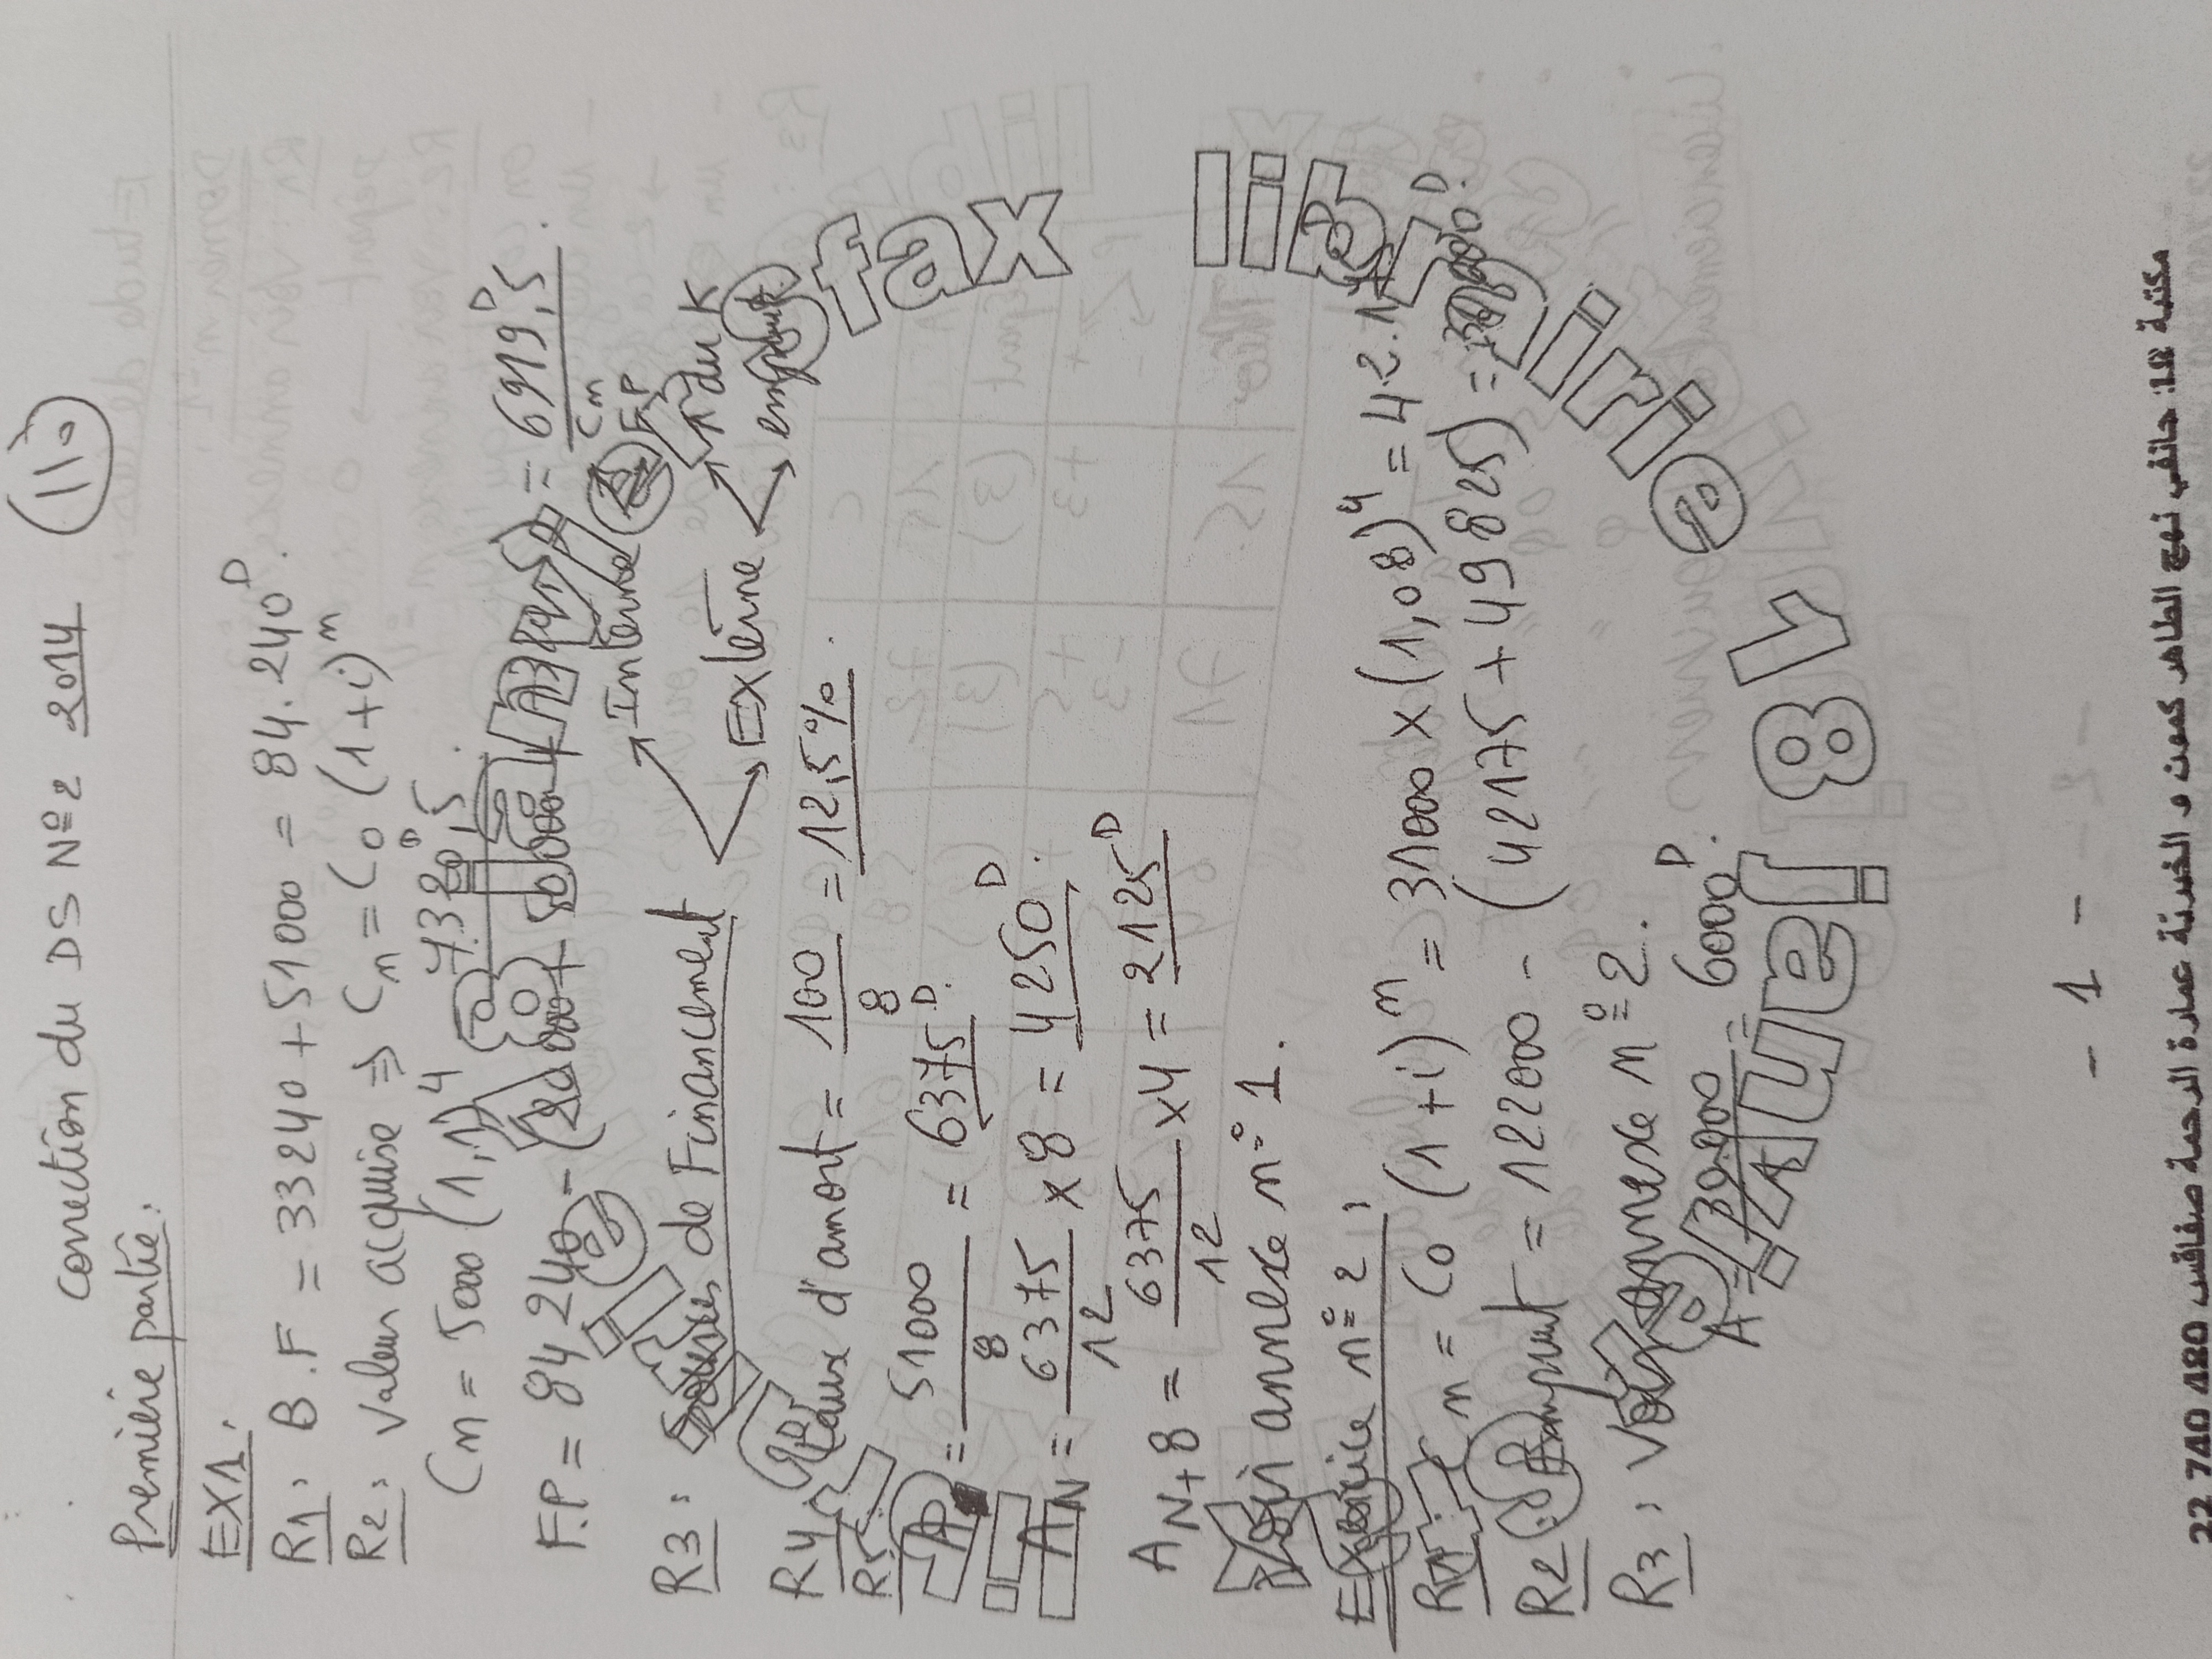 Correction du DS N°2 2014
110
Première partie:
EX1:
R1: B.F = 33240 + 51000 = 84.240 D.
R2: Valeur acquise ⇒ Cn = C0 (1+i)^n
Cn = 5000 (1,1)^4 = 7.320,5 D.
F.P = 84240 - (20 000 + 50 000 + 7320,5) = 6919,5 D.
R3: Sources de Financement
Interne
Cm
F.P
Externe
↑ du K
emprunt
R4: Taux d'amort = 100/8 = 12,5%.
R5: A = 51000/8 = 6375 D.
AN = 6375/12 x 8 = 4250 D.
AN+8 = 6375/12 x 4 = 2125 D
Voir annexe n° 1.
Exercice n° 2:
R1: Cn = C0 (1+i)^n = 31000 x (1,08)^4 = 42.175
R2: Emprunt = 122000 - (42175 + 49825) = 30.000 D.
R3: Voir annexe n° 2.
A = 30.000 / = 6000 D.
Sfax librairie 18 janvier
- 1 -
مكتبة 18 جانفي نهج الطاهر كمون و الخيرية عمارة الرحمة صفاقس 22 740 480